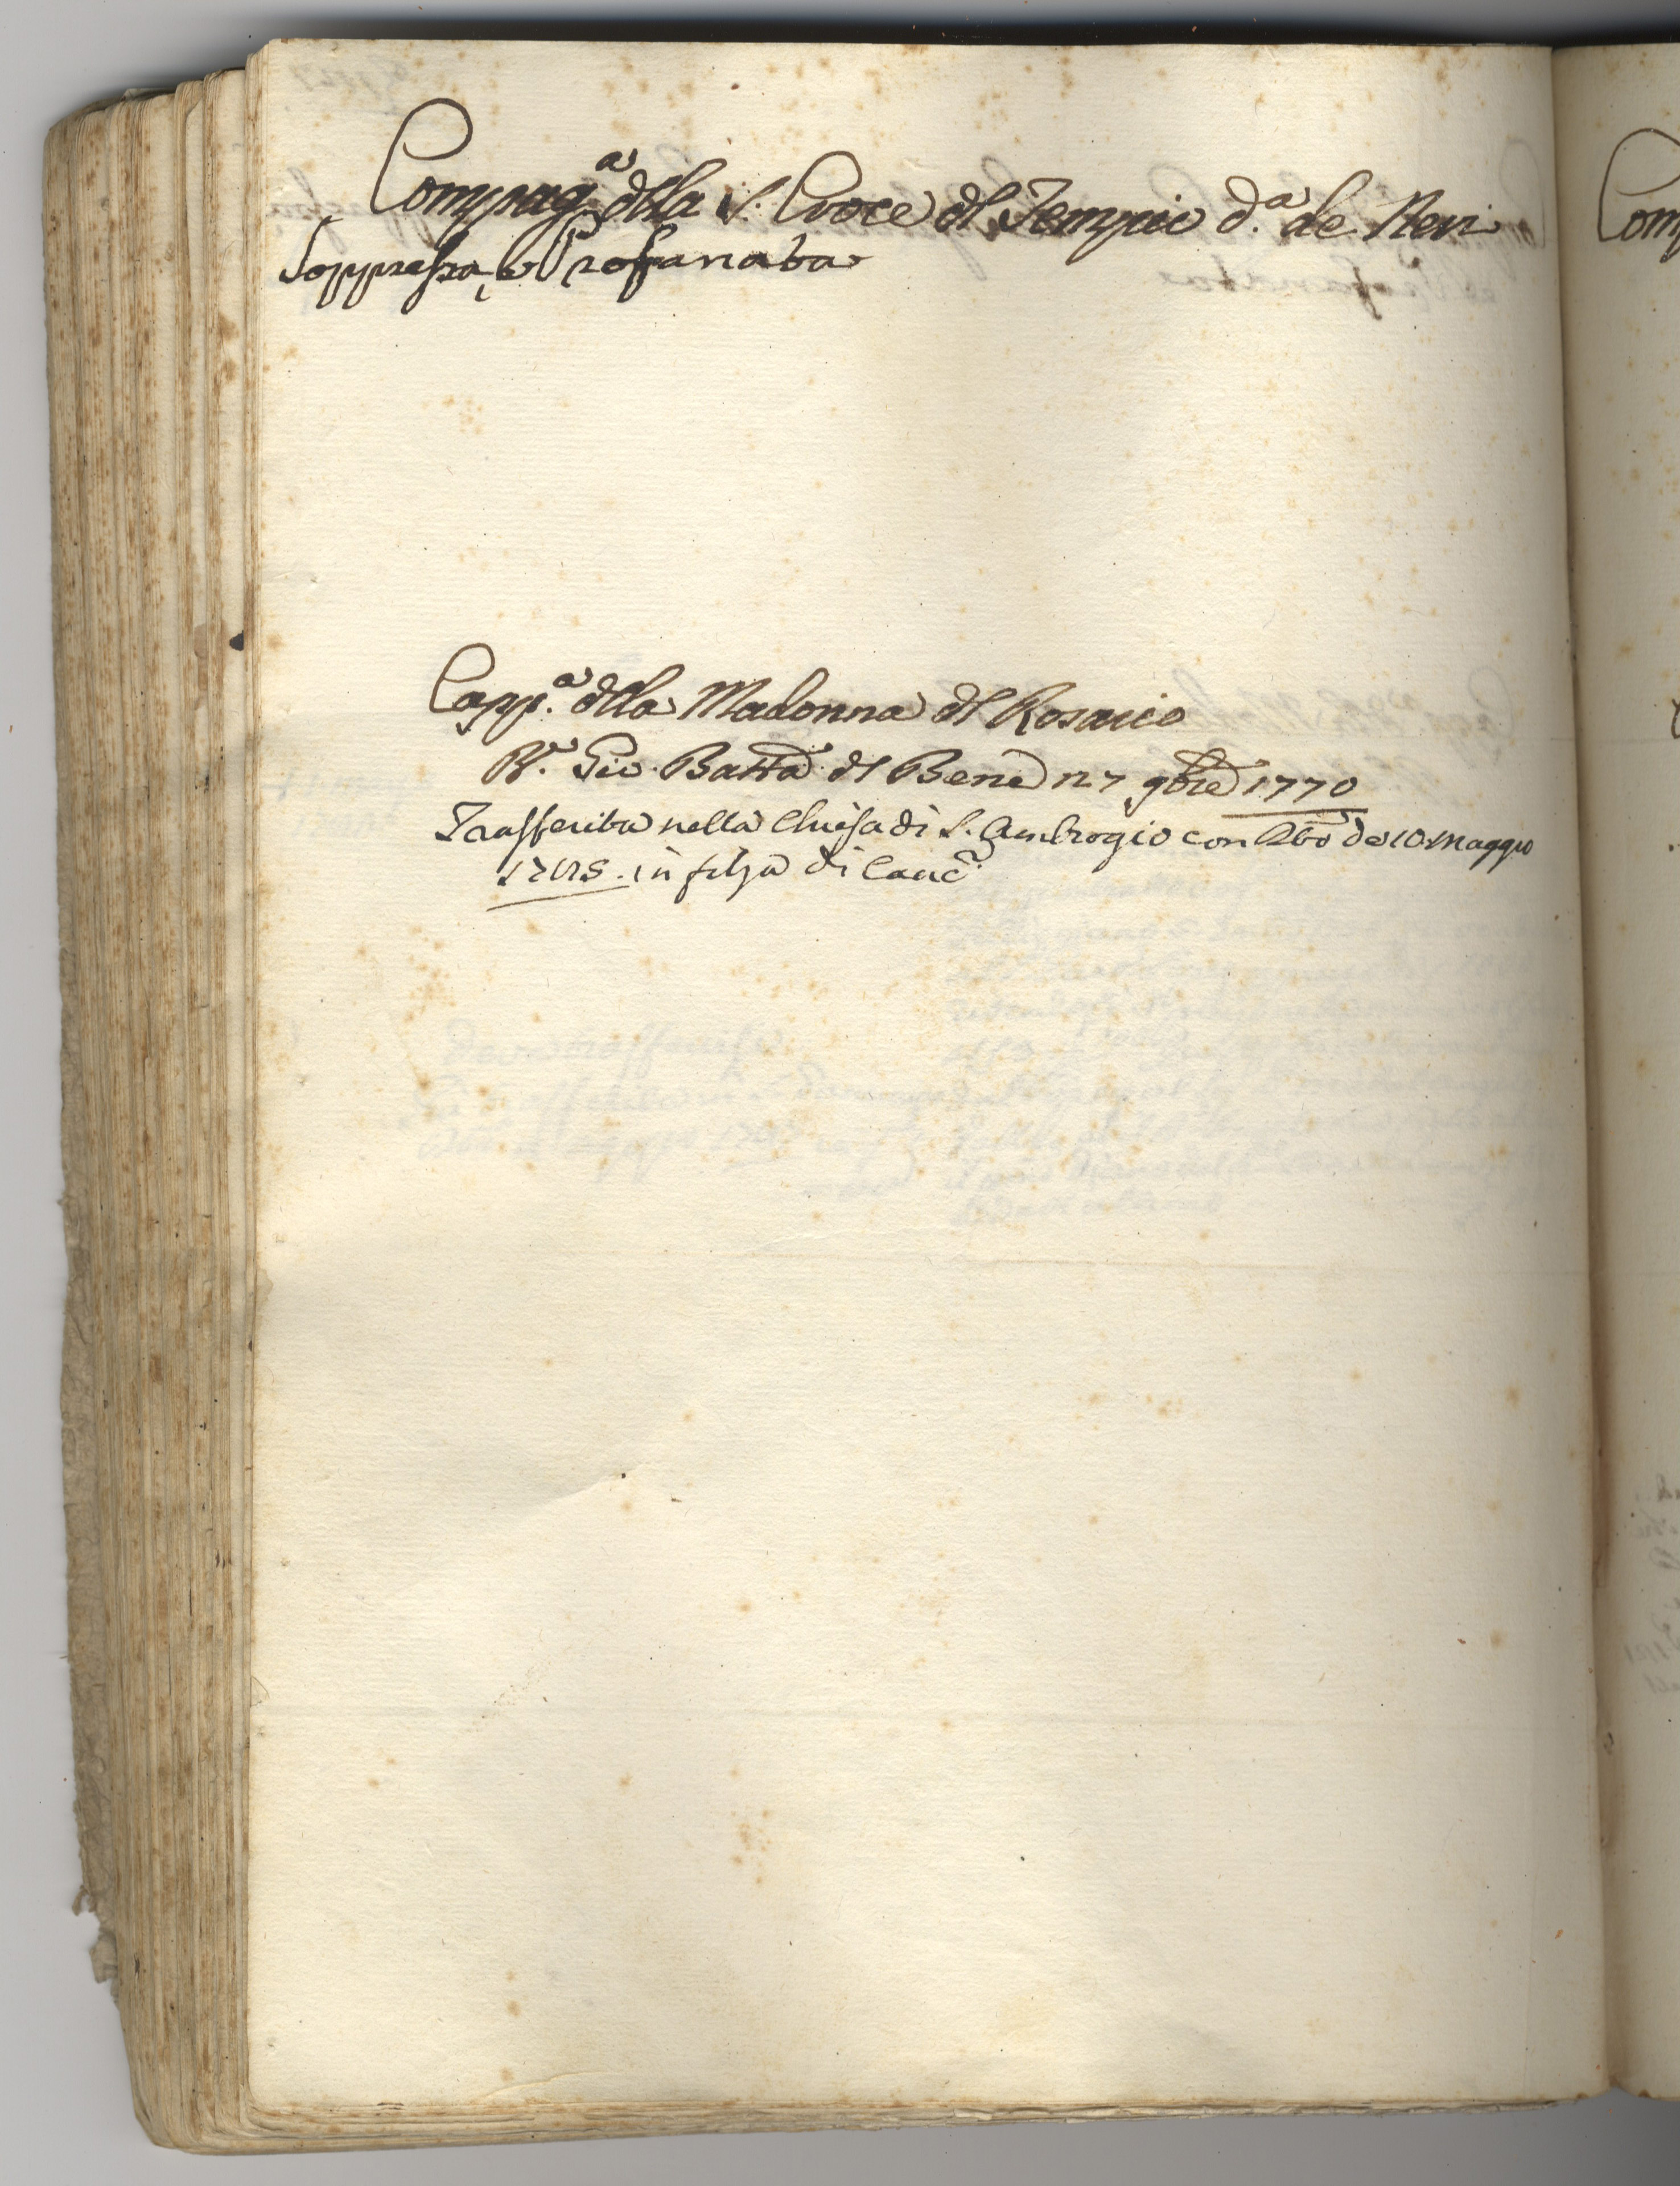 Compag.ª dlla S. Croce dl Tempio d.ª de Neri
Soppressa, e Profanata
Capp.ª dlla Madonna dl Rosario
R.e Gio. Batta dl Bene 27 9bre 1770
Trasferita nella Chiesa di S. Ambrogio con de 10 Maggio
in filza di Canc.
Com